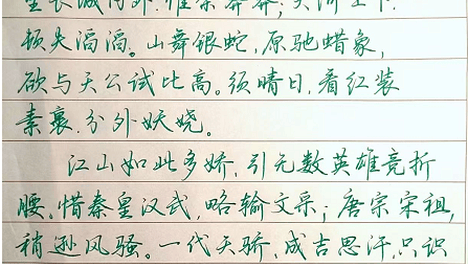 望长城内外，惟余莽莽；大河上下，
顿失滔滔。山舞银蛇，原驰蜡象，
欲与天公试比高。须晴日，看红装
素裹，分外妖娆。
江山如此多娇，引无数英雄竞折
腰。惜秦皇汉武，略输文采；唐宗宋祖，
稍逊风骚。一代天骄，成吉思汗，只识